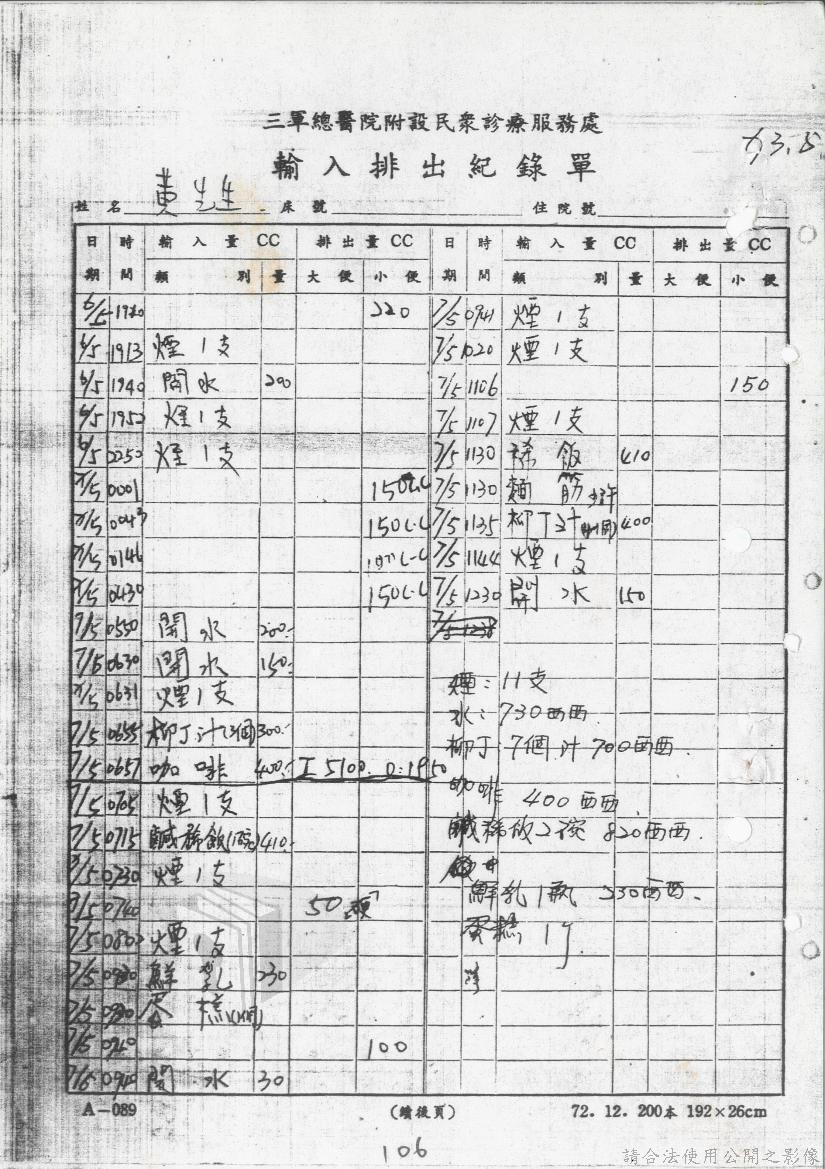 三軍總醫院附設民衆診療服務處
輸入排出紀錄單
姓名 黄先生 床號 住院號
日期 時間 輸入量CC 排出量CC 日期 時間 輸入量CC 排出量CC
類別 量 大便 小便 類別 量 大便 小便
6/5 1913 煙1支
6/5 1940 開水 200
6/5 1952 煙1支
6/5 2250 煙1支
7/5 0001 150C.C
7/5 0043 150C.C
7/5 0146
7/5 0430 150C.C
7/5 0550 開水 200.
7/5 0630 開水 150.
7/5 0631 煙1支
7/5 0655 柳丁汁(3個) 300.
7/5 0657 咖啡 400. I 5100 O:1950
7/5 0705 煙1支
7/5 0715 鹹稀飯(1碗) 410.
7/5 0730 煙1支
7/5 0740 50
7/5 0802 煙1支
7/5 鮮乳 230
7/5 蛋糕
7/5 0940 100
7/5 0940 開水 30
7/5 0941 煙1支
7/5 1020 煙1支
7/5 1106 150
7/5 1107 煙1支
7/5 1130 稀飯 410
7/5 1130 麵筋
7/5 1135 柳丁汁 400
7/5 1144 煙1支
7/5 1230 開水 150
煙:11支
水:730西西
柳丁:7個汁 700西西.
咖啡 400西西
鹹稀飯2碗 820西西.
鮮乳1瓶 230西西.
蛋糕1
A-089 (續後頁) 72.12.200本 192×26cm
106
請合法使用公開之影像